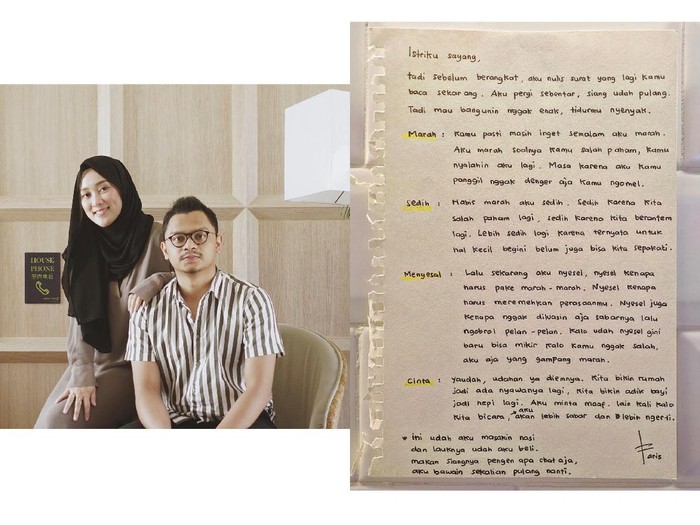 HOUSE
PHONE
Istriku sayang,
tadi sebelum berangkat, aku nulis surat yang lagi kamu
baca sekarang. Aku pergi sebentar, siang udah pulang.
Tadi mau bangunin nggak enak, tidurmu nyenyak.
Marah : Kamu pasti masih inget semalam aku marah.
Aku marah soalnya kamu salah paham, kamu
nyalahin aku lagi. Masa karena aku kamu
panggil nggak denger aja kamu ngomel.
Sedih : Habis marah aku sedih. Sedih karena kita
salah paham lagi, sedih karena kita berantem
lagi. Lebih sedih lagi karena ternyata untuk
hal kecil begini belum juga bisa kita sepakati.
Menyesal : Lalu sekarang aku nyesel, nyesel kenapa
harus pake marah-marah. Nyesel kenapa
harus meremehkan perasaanmu. Nyesel juga
kenapa nggak diwasin aja sabarnya lalu
ngobrol pelan-pelan. Kalo udah nyesel gini
baru bisa mikir kalo kamu nggak salah.
aku aja yang gampang marah.
Cinta : Yaudah, udahan ya diemnya. Kita bikin rumah
jadi ada nyawanya lagi, kita bikin adik bayi
jadi hepi lagi. Aku minta maaf. lain kali kalo
kita bicara, aku akan lebih sabar dan lebih ngerti.
* Ini udah aku masakin nasi
dan lauknya udah aku beli.
makan siangnya pengen apa chat aja,
aku bawain sekalian pulang nanti.
Faris